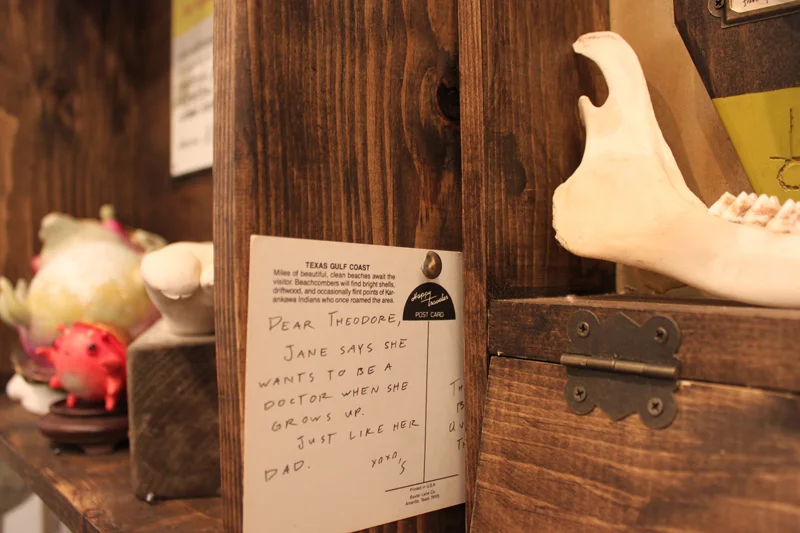 TEXAS GULF COAST
Miles of beautiful, clean beaches await the
visitor. Beachcombers will find bright shells,
driftwood, and occasionally flint points of Kar-
ankawa Indians who once roamed the area.
Happy
Traveler
POST CARD
DEAR THEODORE,
JANE SAYS SHE
WANTS TO BE A
DOCTOR WHEN SHE
GROWS UP.
JUST LIKE HER
DAD.
XOXO,
S
Printed in U.S.A.
Amarillo, Texas